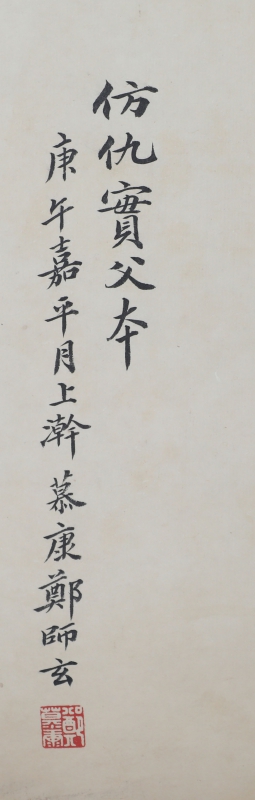 仿仇實父本
庚午嘉平月上澣慕康鄭師玄
鄭慕康